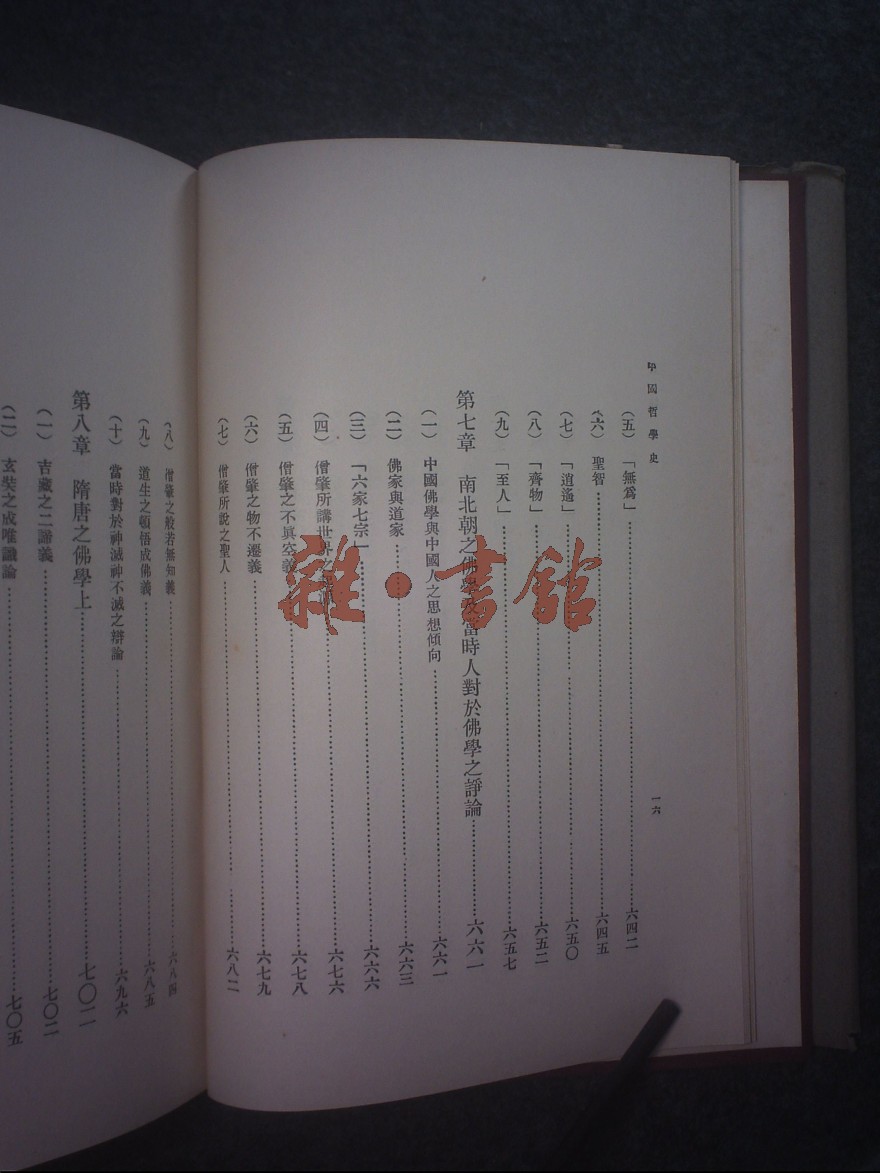 中國哲學史
一六
（五）「無爲」……六四二
（六）聖智……六四五
（七）「逍遙」……六五〇
（八）「齊物」……六五二
（九）「至人」……六五七
第七章 南北朝之佛學及當時人對於佛學之諍論……六六一
（一）中國佛學與中國人之思想傾向……六六一
（二）佛家與道家……六六三
（三）「六家七宗」……六六六
（四）僧肇所講世界之起源……六七六
（五）僧肇之不眞空義……六七八
（六）僧肇之物不遷義……六七九
（七）僧肇所說之聖人……六八二
（八）僧肇之般若無知義……六八四
（九）道生之頓悟成佛義……六八五
（十）當時對於神滅神不滅之辯論……六九六
第八章 隋唐之佛學上……七〇二
（一）吉藏之二諦義……七〇二
（二）玄奘之成唯識論……七〇五
雜·書館